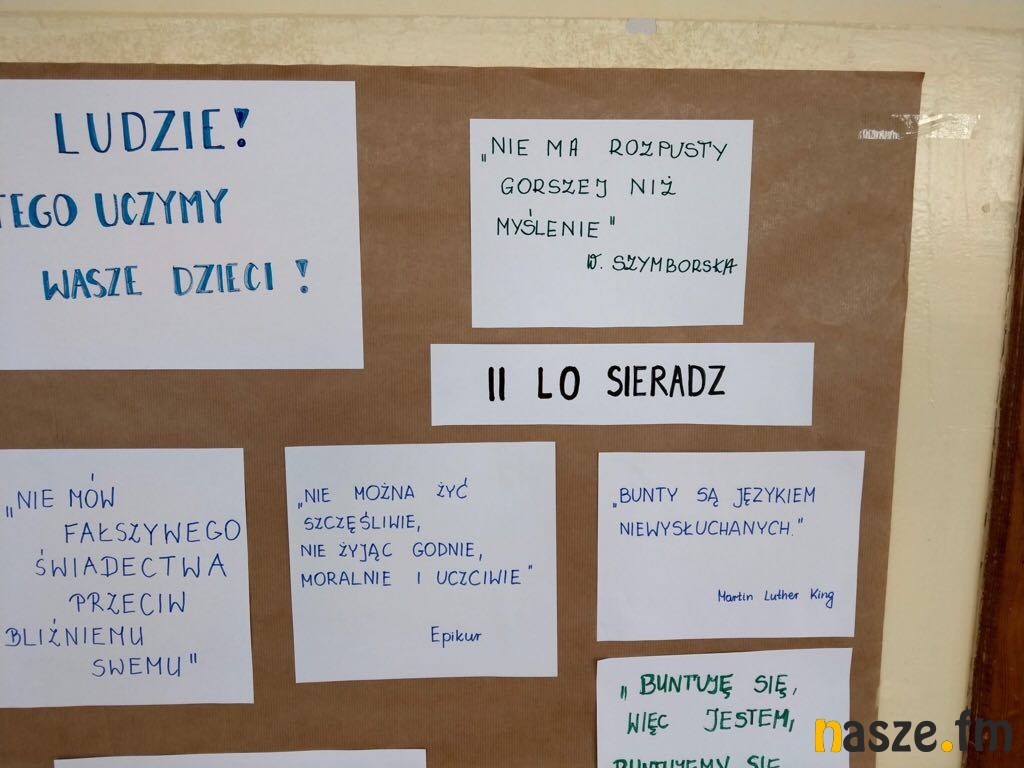 LUDZIE!
TEGO UCZYMY
WASZE DZIECI!
„NIE MA ROZPUSTY
GORSZEJ NIŻ
MYŚLENIE"
W. SZYMBORSKA
II LO SIERADZ
„NIE MÓW
FAŁSZYWEGO
ŚWIADECTWA
PRZECIW
BLIŹNIEMU
SWEMU"
„NIE MOŻNA ŻYĆ
SZCZĘŚLIWIE,
NIE ŻYJĄC GODNIE,
MORALNIE I UCZCIWIE"
Epikur
„BUNTY SĄ JĘZYKIEM
NIEWYSŁUCHANYCH."
Martin Luther King
„BUNTUJĘ SIĘ,
WIĘC JESTEM,
BUNTUJEMY SIĘ
nasze.fm